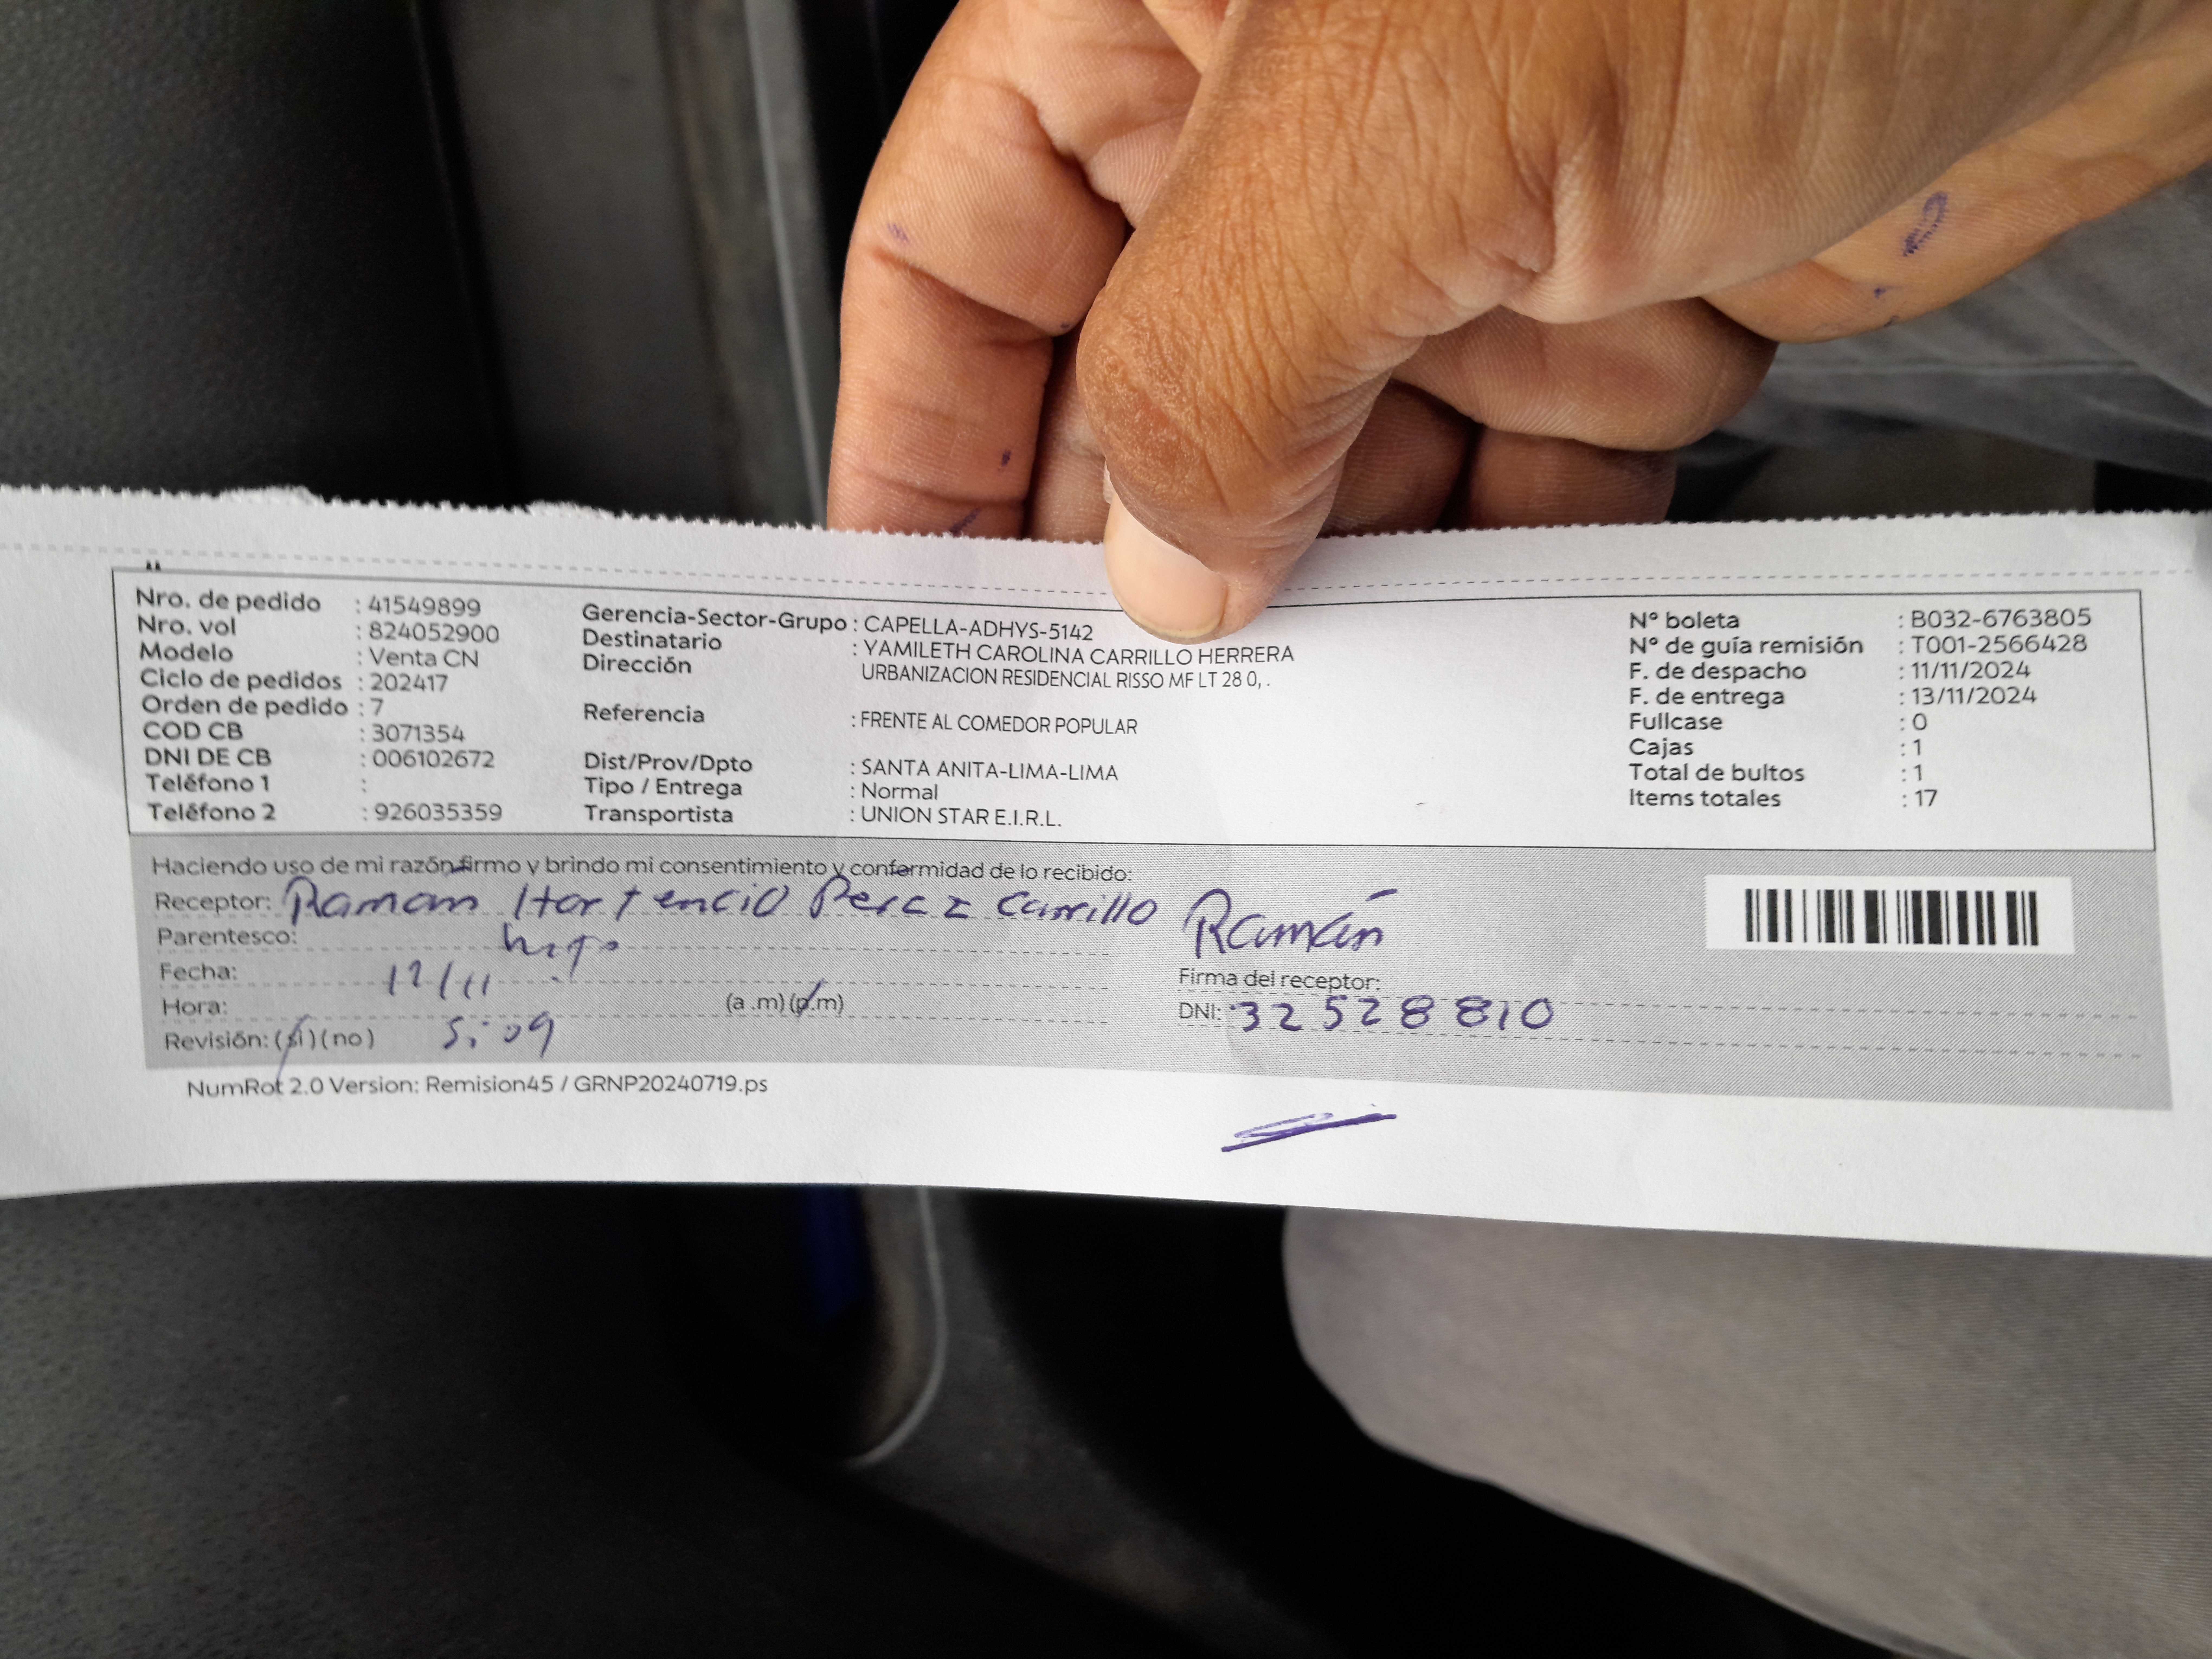 Nro. de pedido : 41549899
Nro. vol : 824052900
Modelo : Venta CN
Ciclo de pedidos : 202417
Orden de pedido : 7
COD CB : 3071354
DNI DE CB : 006102672
Teléfono 1 :
Teléfono 2 : 926035359
Gerencia-Sector-Grupo : CAPELLA-ADHYS-5142
Destinatario : YAMILETH CAROLINA CARRILLO HERRERA
Dirección URBANIZACION RESIDENCIAL RISSO MF LT 28 0, .
Referencia : FRENTE AL COMEDOR POPULAR
Dist/Prov/Dpto : SANTA ANITA-LIMA-LIMA
Tipo / Entrega : Normal
Transportista : UNION STAR E.I.R.L.
N° boleta : B032-6763805
N° de guía remisión : T001-2566428
F. de despacho : 11/11/2024
F. de entrega : 13/11/2024
Fullcase : 0
Cajas : 1
Total de bultos : 1
Items totales : 17
Haciendo uso de mi razón firmo y brindo mi consentimiento y conformidad de lo recibido:
Receptor: Ramon Hortencio Perez Carrillo
Parentesco:
Fecha: 12/11
Hora: (a .m) (p.m)
Revisión: (si) (no) 5:09
Ramón
Firma del receptor:
DNI: 32528810
NumRot 2.0 Version: Remision45 / GRNP20240719.ps